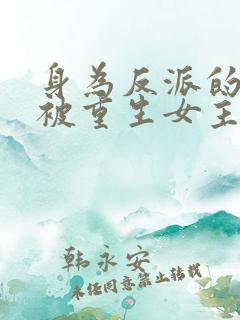 身为反派的
被重生女主
韩永安
未经同意禁止转载